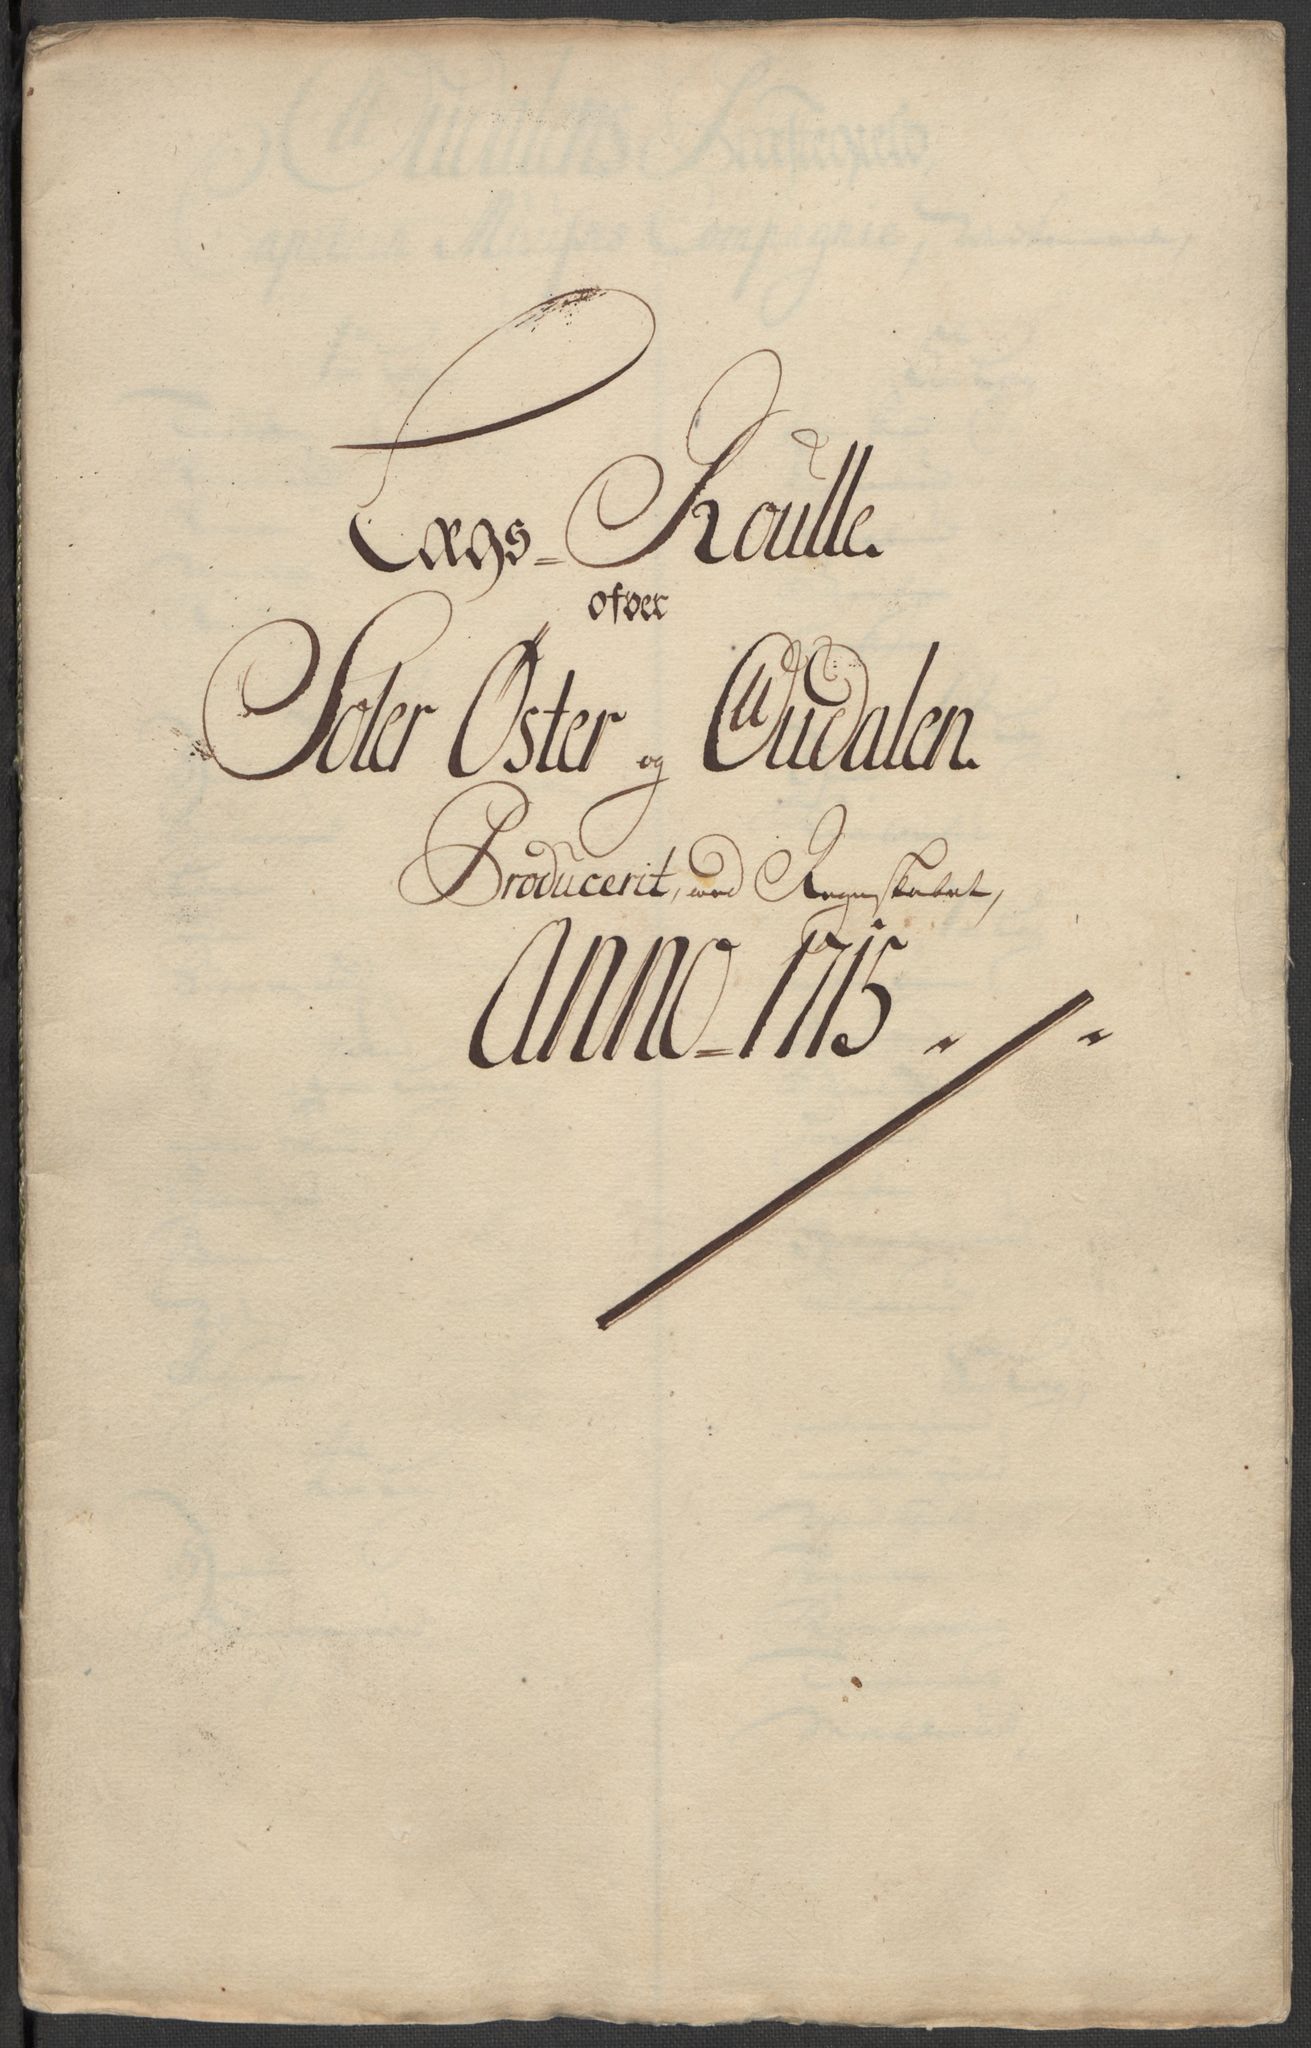 Lægs = Roulle.
ofver
Soler Øster og Oudalen.
Producerit, wed Regenskabet,
Anno = 1715